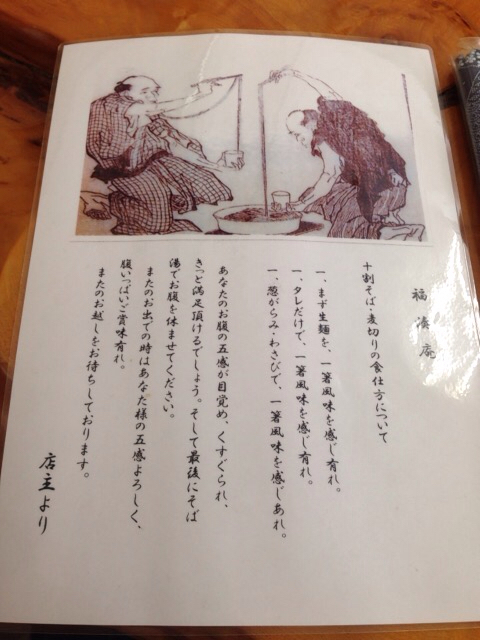 福 庵
十割そば・麦切りの食仕方について
一、まず生麺を、一箸風味を感じ有れ。
一、タレだけで、一箸風味を感じ有れ。
一、葱がらみ・わさびで、一箸風味を感じあれ。
あなたのお腹の五感が目覚め、くすぐられ、
きっと満足頂けるでしょう。そして最後にそば
湯でお腹を休ませてください。
またのお出での時はあなた様の五感よろしく、
腹いっぱいご賞味有れ。
またのお越しをお待ちしております。
店主より